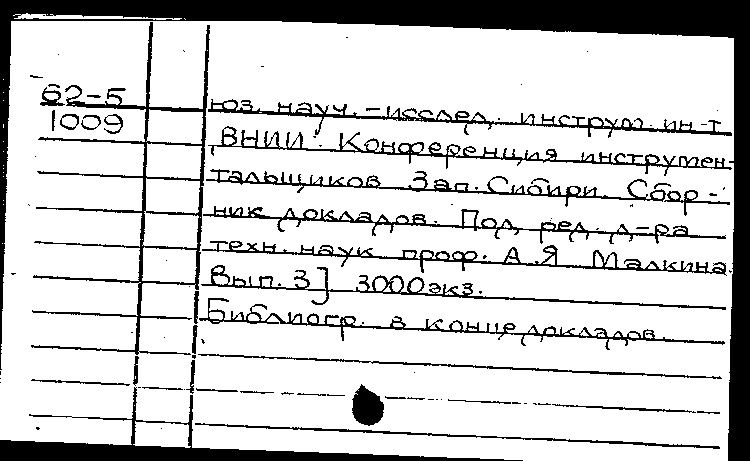 62-5
1009
юз. науч.-исслед. инструм. ин-т
ВНИИ. Конференция инструмен-
тальщиков Зап. Сибири. Сбор-
ник докладов. Под ред. д-ра
техн. наук проф. А.Я Малкина.
Вып. 3] 3000экз.
Библиогр. в конце докладов.